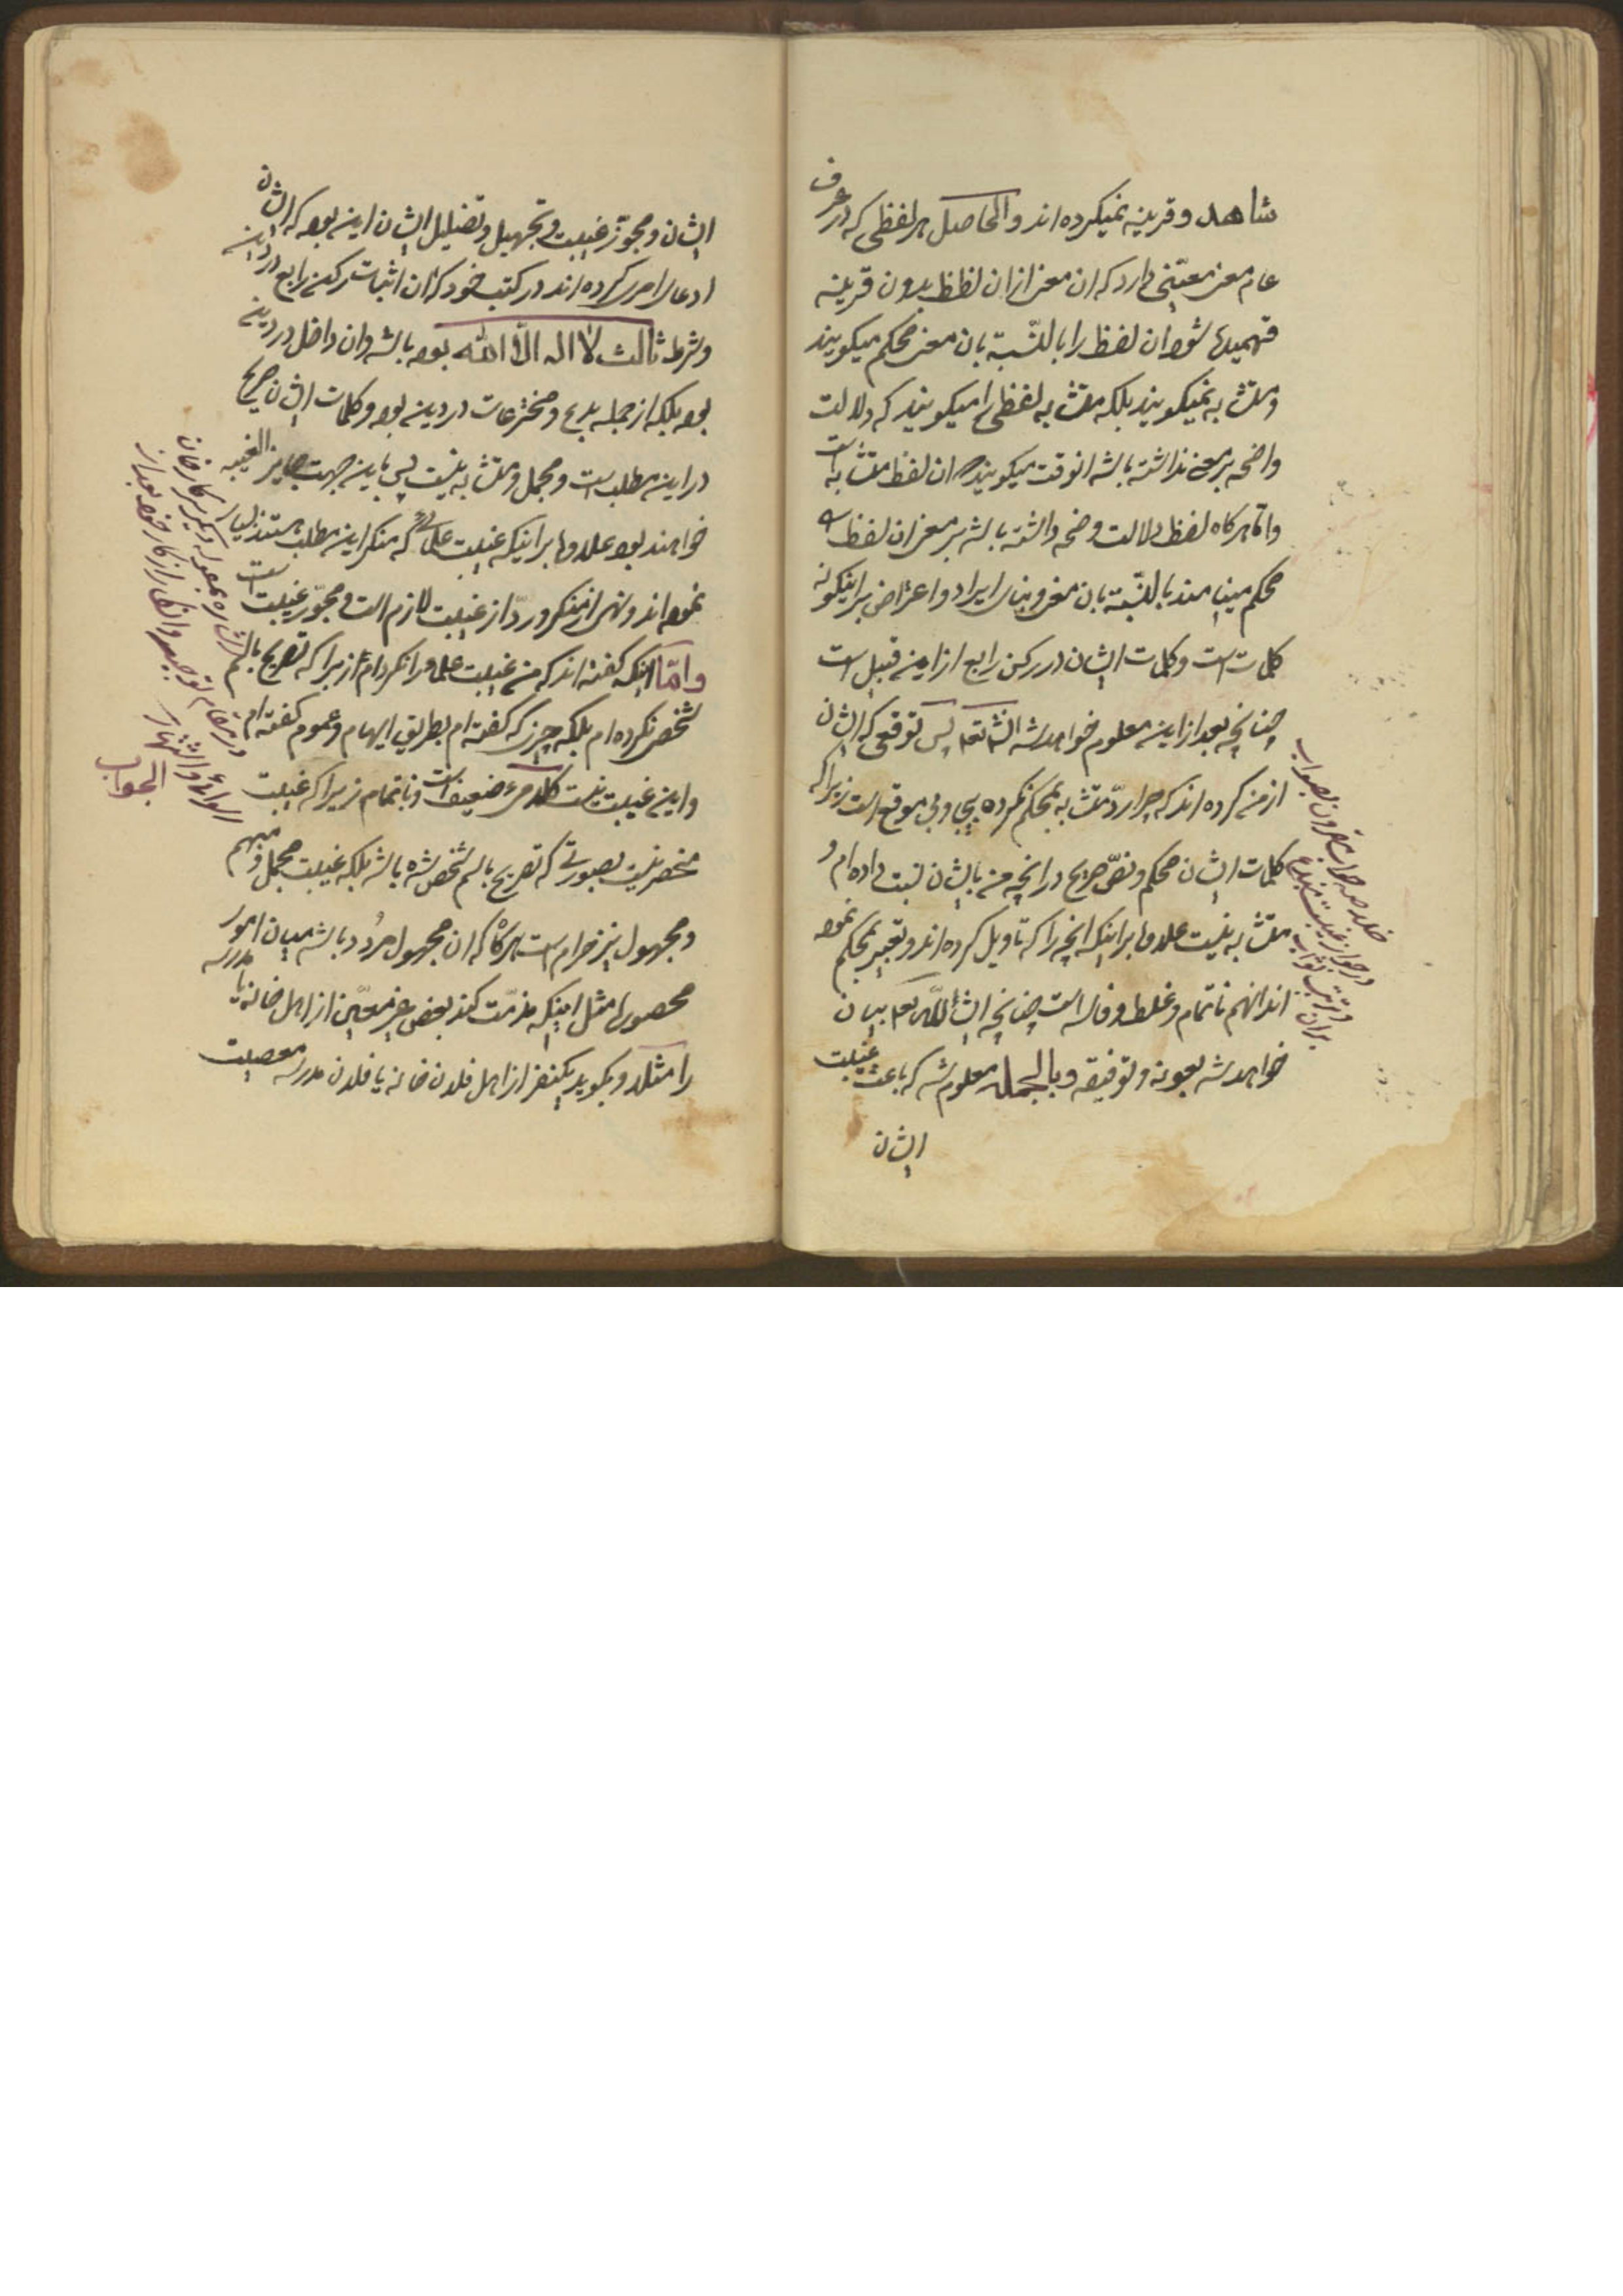 شاهد و قرینه نمیکرده اند والحاصل هر لفظی که در عرف
عام معنی معیّنی دارد که ان معنی از ان لفظ بدون قرینه
فهمیده شود ان لفظ را بالنّسبة بان معنی محکم میکویند
و متشابه نمیکویند بلکه متشابه لفظی را میکویند که دلالت
واضحه بر معنی نداشته باشد انوقت میکویند ان لفظ متشابه است
و امّا هرکاه لفظ دلالت واضحه داشته باشد بر معنی ان لفظ را
محکم مینامند بالنّسبة بان معنی و بنای ایراد و اعتراض بر اینکونه
کلمات است و کلمات ایشان در رکن رابع از این قبیل است
چنانچه بعد از این معلوم خواهد شد انشاءالله تعالی پس توقعی که ایشان
از من کرده اند که چرا ردّ متشابه بمحکم نکرده بیجا و بی موقع است زیرا که
کلمات ایشان محکم و نصّ صریح در انچه من بایشان نسبت داده ام و
متشابه نیست علاوه بر اینکه انچه را که تاویل کرده اند و تعبیر بمحکم نموده
اند انهم ناتمام و غلط و فاسد است چنانچه انشاءالله بعد بیان
خواهد شد بعونه و توفیقه و بالجمله معلوم شد که باعث غیبت
ایشان
ایشان و مجوّز غیبت و تجهیل و تضلیل ایشان این بوده که ایشان
ادعای امری کرده اند در کتب خود که ان اثبات رکن رابع در دین
و شرط ثالث لا اله الّا الله بوده باشد و ان داخل در دین
بوده بلکه از جمله بدع و مخترعات در دین بوده و کلمات ایشان صریح
در این مطلب است و مجمل و متشابه نیست پس باین جهت جایز الغیبه
خواهند بود علاوه بر اینکه غیبت علمائی که منکر این مطلب هستند بسیار
نموده اند و نهی از منکر و ردّ از غیبت لازم است و مجوّز غیبت است
و امّا اینکه کفته اند که من غیبت علما را نکرده ام زیرا که تصریح باسم
شخص نکرده ام بلکه چیزی که کفته ام بطریق ابهام و عموم کفته ام
و این غیبت نیست کلامیست ضعیف و ناتمام زیرا که غیبت
منحصر نیست بصورتی که تصریح باسم شخص شده باشد بلکه غیبت مجمل و مبهم
و مجهول نیز حرام است هرکاه که ان مجهول مردّد باشد میان امور
محصوره مثل اینکه مذمّت کند بعض غیر معیّن از اهل خانه یا مدرسه
را مثلا و بکوید یکنفر از اهل فلان خانه یا فلان مدرسه معصیت
الجواب